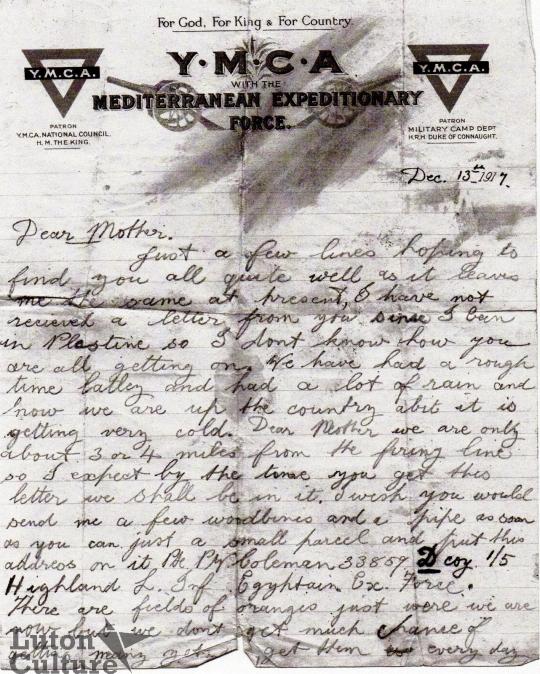 For God, For King & For Country.
Y·M·C·A
WITH THE
MEDITERRANEAN EXPEDITIONARY
FORCE.
Y.M.C.A.
PATRON
Y.M.C.A. NATIONAL COUNCIL.
H.M. THE KING.
Y.M.C.A.
PATRON
MILITARY CAMP DEPT
H.R.H DUKE OF CONNAUGHT.
Dec. 13th 1917.
Dear Mother.
Just a few lines hoping to
find you all quite well as it leaves
me the same at present, I have not
recieved a letter from you since I ben
in Plestine so I dont know how you
are all getting on. We have had a rough
time latley and had a lot of rain and
now we are up the country abit it is
getting very cold. Dear Mother we are only
about 3 or 4 miles from the firing line
so I expect by the time you get this
letter we shall be in it. I wish you would
send me a few woodbines and a pipe as soon
as you can just a small parcel and put this
address on it, Pte Coleman 33859 D coy 1/5
Highland L. Inf. Egyptain Ex. Force.
There are fields of oranges just were we are
now but we dont get much chance of
many get them every day
Luton
Culture